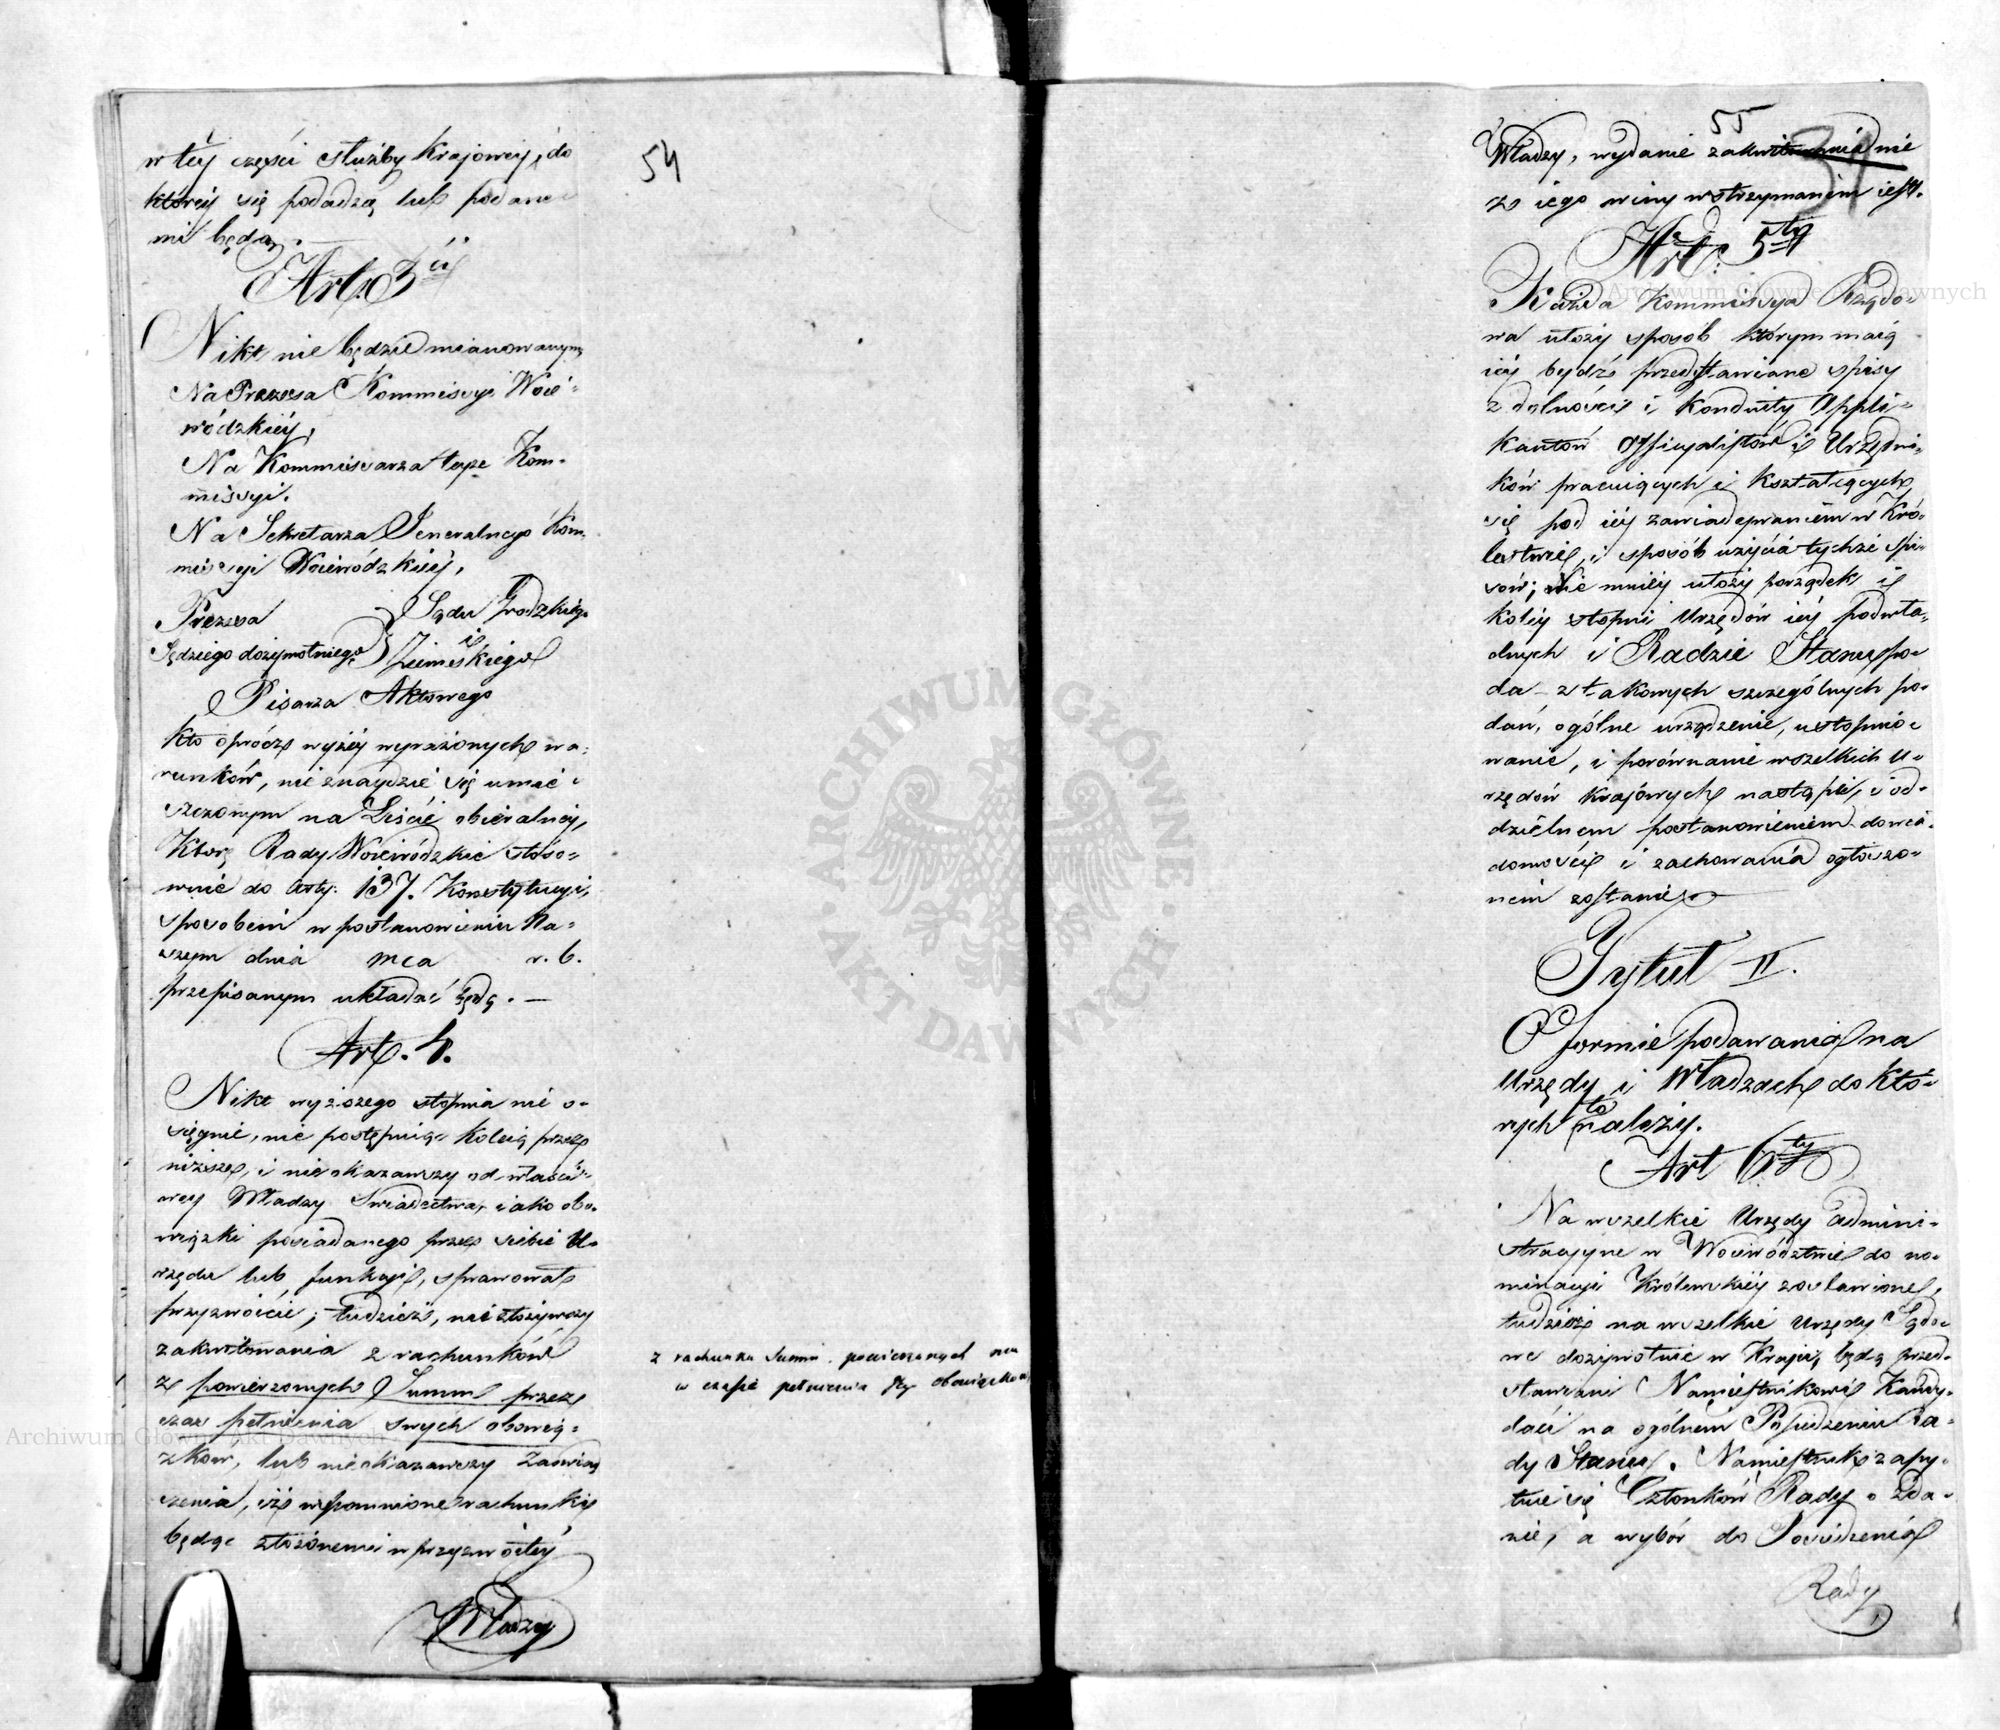 54
w téy części służby Krajowey, do
któréy się podadzą lub podane-
mi będą.
Art: 3ci
Nikt nie będzie mianowanym
Na Prezesa Kommissyi Woie-
wódzkiéy,
Na Kommissarza teyże Kom-
missyi.
Na Sekretarza Jeneralnego Kom-
missyi Woiewódzkiéy,
Prezesa } Sądu Grodzkiego
Sędziego dożywotniego } i Ziemskiego
Pisarza Aktowego
kto oprócz wyżéy wyrażonych wa-
runków, nie znaydzie się umie-
szczonym na Liście obieralney,
Którą Rady Woiewódzkie stoso-
wnie do Arty: 137. Konstytucyi,
sposobem w postanowieniu Na-
szym dnia mca r. b.
przepisanym układać będą. —
Art. 4.
Nikt wyższego stopnia nie o-
siągnie, nie postąpiwszy koleią przez
niższe, i nie okazawszy od właści-
wey Władzy Swiadectwa, iako obo-
wiązki posiadanego przez siebie U-
rzędu lub funkcyi, sprawował
przyzwoicie; tudzież, nie złożywszy
zakwitowania z rachunków
z powierzonych Summ przez
czas pełnienia swych obowią-
zków, lub nie okazawszy Zaświad
czenia, iż wspomnione rachunki
będąc złożonemi w przyzwoitéy
Władzy
z rachunku Summ powierzonych mu
w czasie pełnienia tych obowiązków
55
Władzy, wydanie zakwitowania nie
z iego winy wstrzymanem iest.
Art: 5ty
Każda Kommissya Rządo-
wa ułoży sposob którym maią
iéy bydź przedstawiane spisy
zdolności i Konduity Appli-
kantów Officyalistów i Urzędni-
ków pracuiących i kształcących
się pod iéy zawiadywaniem w Kró-
lestwie, i sposób użycia tychże spi-
sów; Nie mniéy ułoży porządek i
koléy stopni Urzędów iéy podwła-
dnych i Radzie Stanu po-
da z takowych szczególnych po-
dań, ogólne urządzenie, ustopnio-
wanie, i porównanie wszelkich U-
rzędów Krajowych nastąpi, i od-
dzielnem postanowieniem do wia-
domości i zachowania ogłoszo-
nem zostanie.
Tytuł II.
O formie podawania na
Urzędy i Władzach do Któ-
rych to należy.
Art 6ty
Na wszelkie Urzędy admini-
stracyjne w Woiewództwie do no-
minacyi Królewskiéy zostawione,
tudzież na wszelkie Urzędy Sądo-
we dożywotnie w Kraju, będą przed-
stawiani Namiestnikowi Kandy-
daci na ogólném Posiedzeniu Ra-
dy Stanu. Namiestnik zapy-
tuie się Członków Rady o zda-
nie, a wybór do Posiedzenia
Rady
Archiwum Główne Akt Dawnych
Archiwum Główne Akt Dawnych
ARCHIWUM GŁÓWNE
AKT DAWNYCH